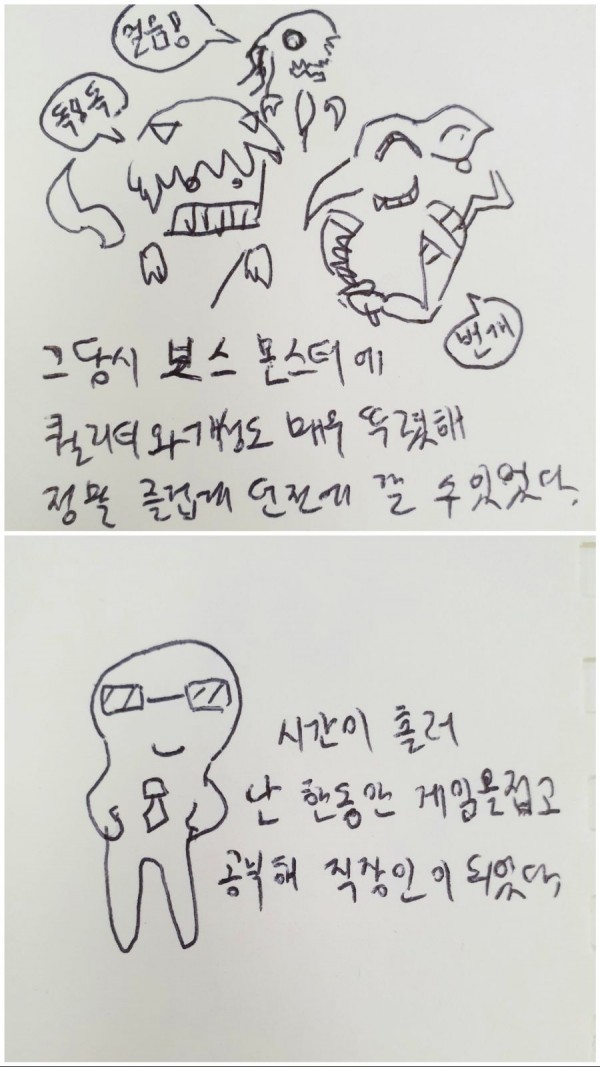 얼음빵
독녹독
번개
그 당시 보스 몬스터에
퀄리티와 개성도 매우 뚜렸해
정말 즐겁게 던전에 갈 수 있었다.
시간이 흘러
난 한동안 게임을 접고
공부해 직장인이 되었다.